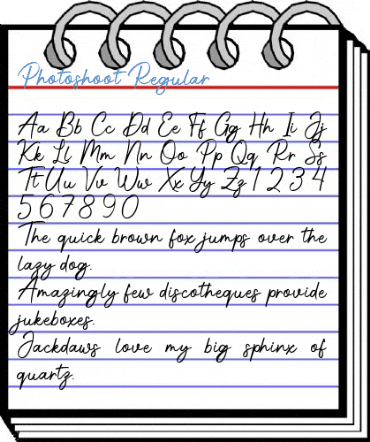 Photoshoot Regular
Aa Bb Cc Dd Ee Ff Gg Hh Ii Jj
Kk Ll Mm Nn Oo Pp Qq Rr Ss
Tt Uu Vv Ww Xx Yy Zz 1 2 3 4
5 6 7 8 9 0
The quick brown fox jumps over the
lazy dog.
Amazingly few discotheques provide
jukeboxes.
Jackdaws love my big sphinx of
quartz.